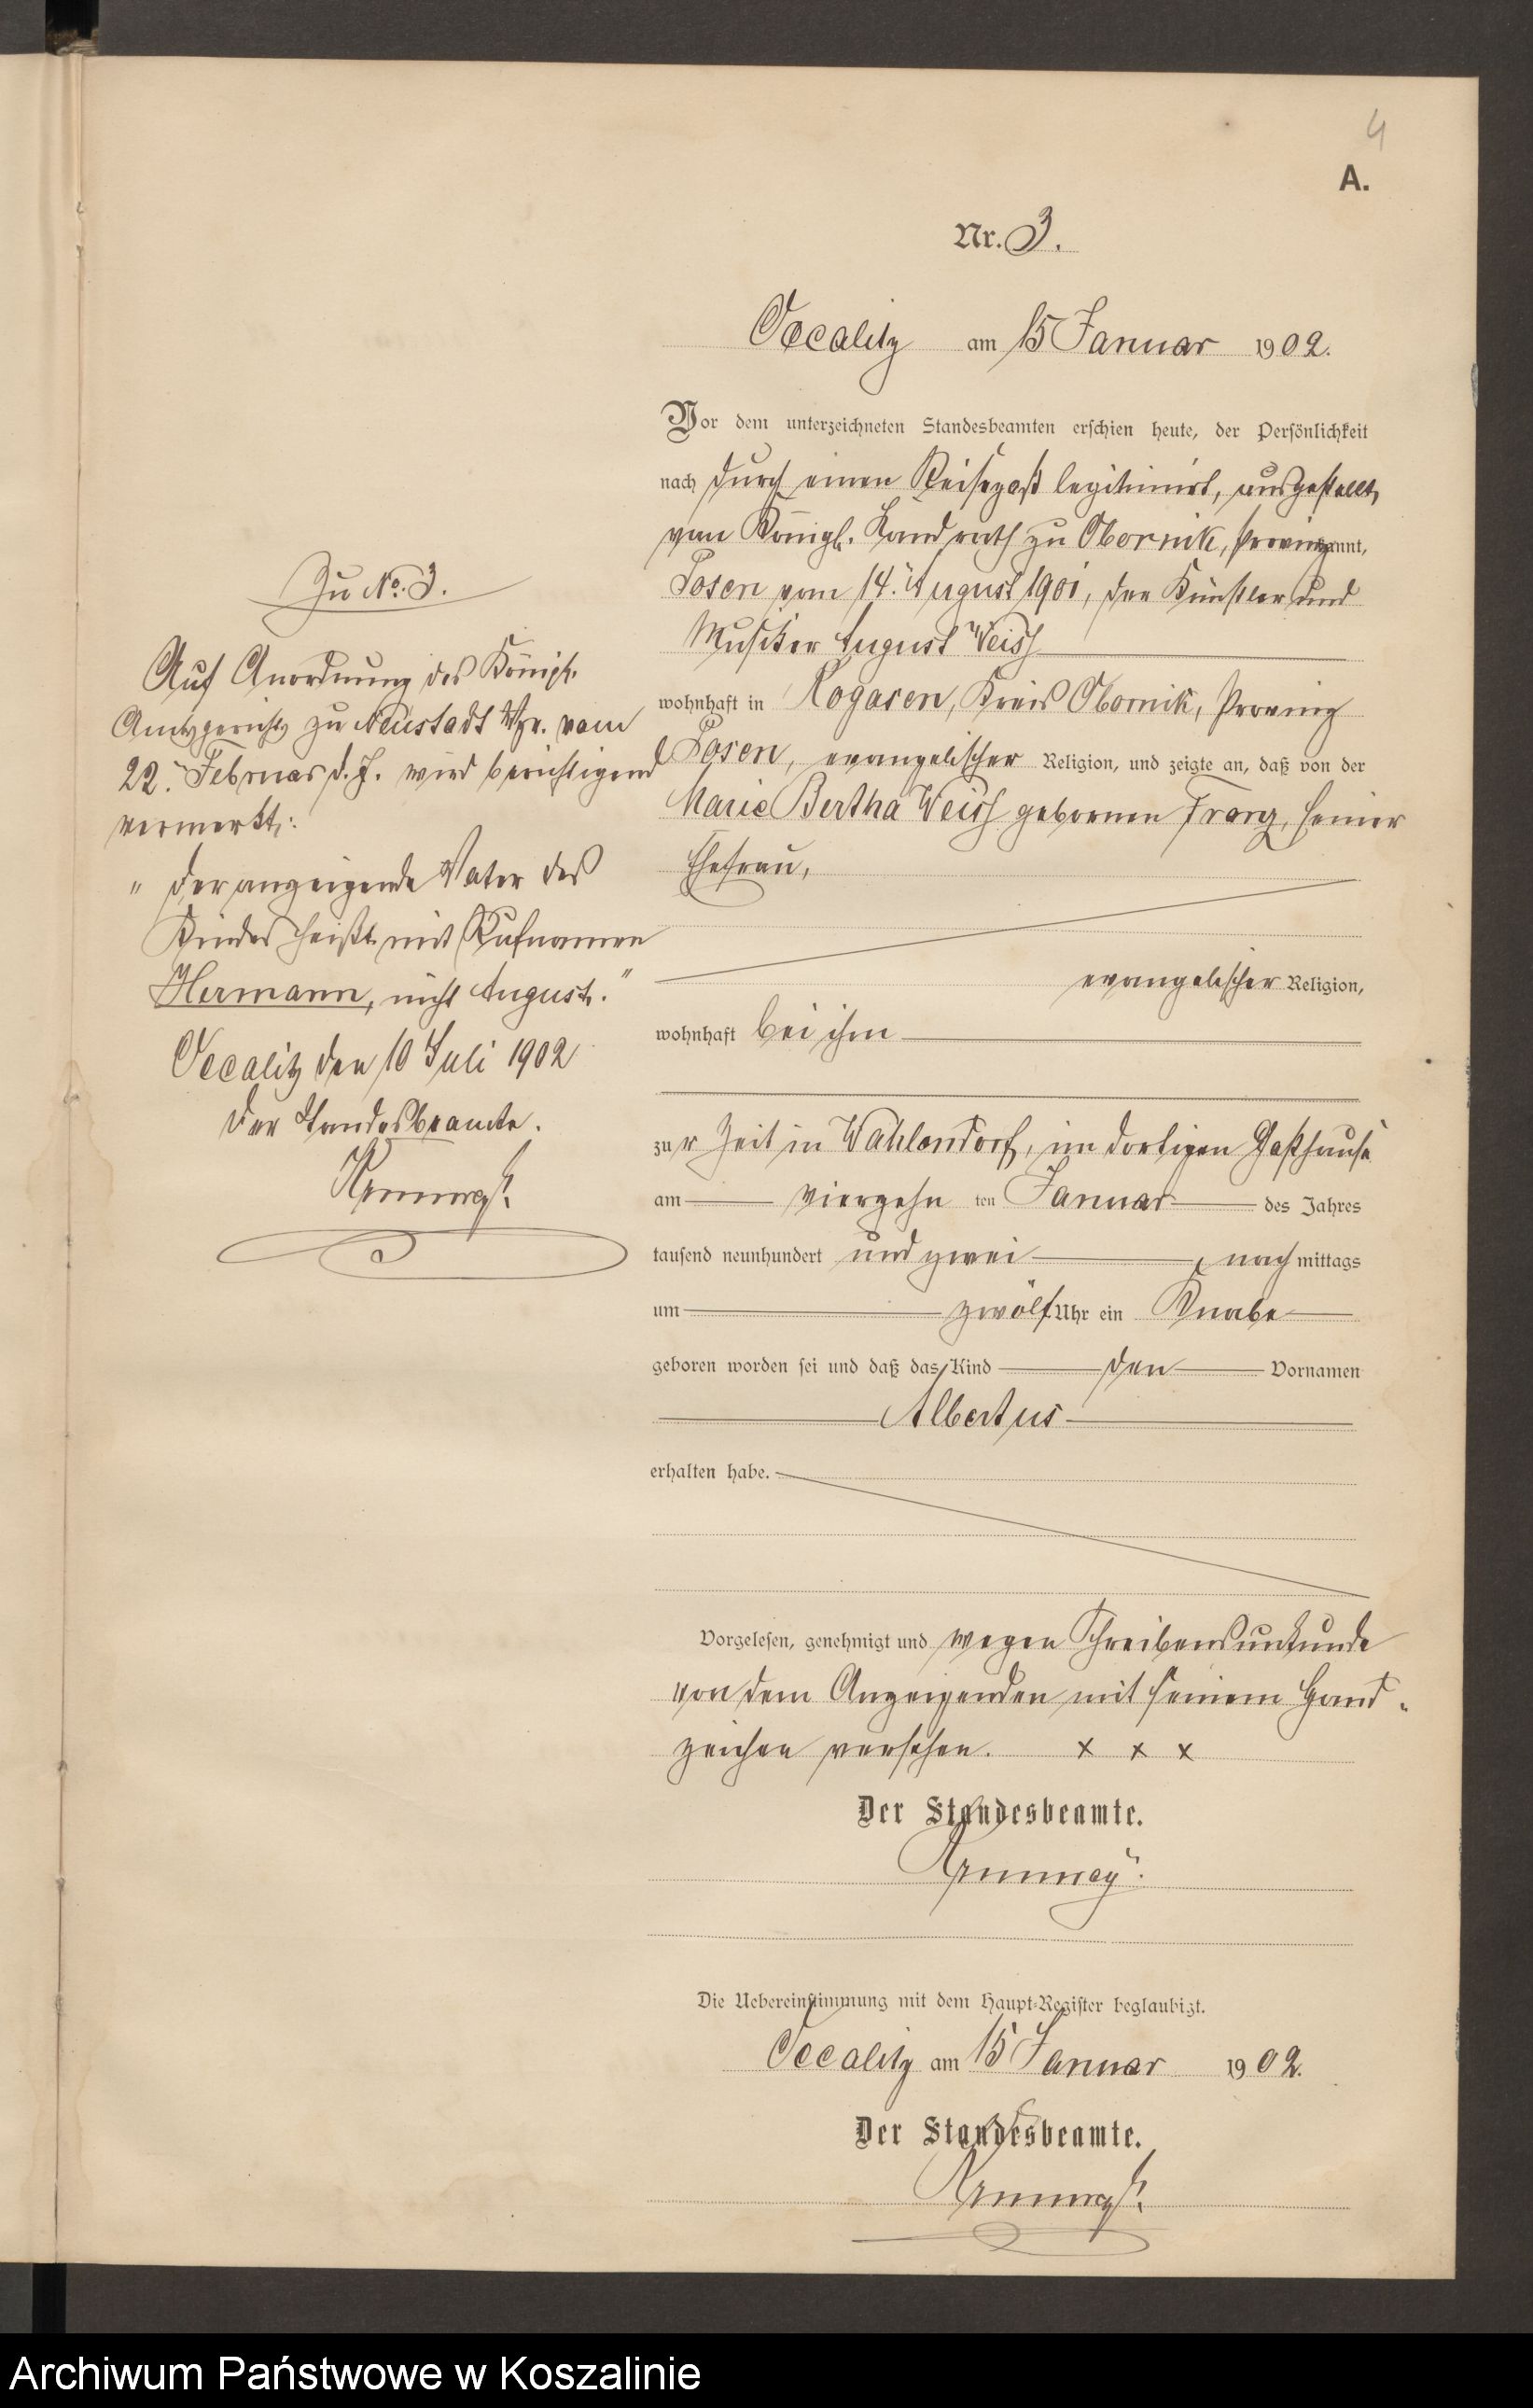 4
A.
Nr. 3.
Occalitz am 15 Januar 1902.
Vor dem unterzeichneten Standesbeamten erschien heute, der Persönlichkeit
nach durch einen Reisepaß legitimirt, ausgestellt,
vom Königl. Landrath zu Obornik, Provinz kannt,
Posen vom 14. August 1901, der Künstler und
Musiker August Weiss
wohnhaft in Rogasen, Kreis Obornik, Provinz
Posen, evangelischer Religion, und zeigte an, daß von der
Marie Bertha Weiss gebornen Franz, seiner
Ehefrau,
evangelischer Religion,
wohnhaft bei ihm
zur Zeit in Wahlendorf, im dortigen Gasthause
am vierzehn ten Januar des Jahres
tausend neunhundert und zwei, nach mittags
um zwölf Uhr ein Knabe
geboren worden sei und daß das Kind den Vornamen
Albertus
erhalten habe.
Vorgelesen, genehmigt und wegen Schreibensunkunde
von dem Anzeigenden mit seinem Hand-
zeichen versehen. x x x
Der Standesbeamte.
Die Uebereinstimmung mit dem Haupt-Register beglaubigt.
Occalitz am 15 Januar 1902.
Der Standesbeamte.
Zu No. 3.
Auf Anordnung des Königl.
Amtsgerichts zu Neustadt Wpr. vom
22. Februar d. J. wird berichtigend
vermerkt:
"der anzeigende Vater des
Kindes heißt mit Rufnamen
Hermann, nicht August."
Occalitz den 10 Juli 1902
Der Standesbeamte.
Archiwum Państwowe w Koszalinie